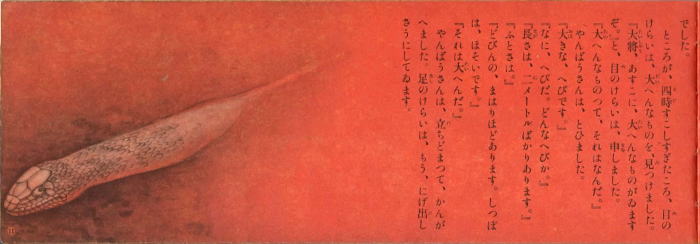 でした。
ところが、四時すこしすぎたころ、目の
けらいは、大へんなものを、見つけました。
『大將、あすこに、大へんなものがゐます
ぞ。』と、目のけらいは、申しました。
『大へんなものつて、それはなんだ。』
やんばうさんは、とひました。
『大きな、へびです。』
『なに、へびだ。どんなへびか。』
『長さは、二メートルばかりあります。』
『ふとさは。』
『どびんの、まはりほどあります。しつぽ
は、ほそいです。』
『それは大へんだ。』
やんばうさんは、立ちどまつて、かんが
へました。足のけらいは、もう、にげ出し
さうにしてゐます。
11